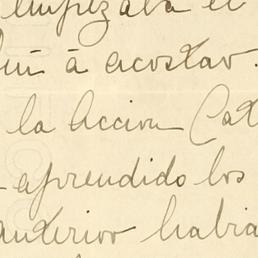 empezaba el
á acostar.
la Accion Cat
aprendido los
anterior habia